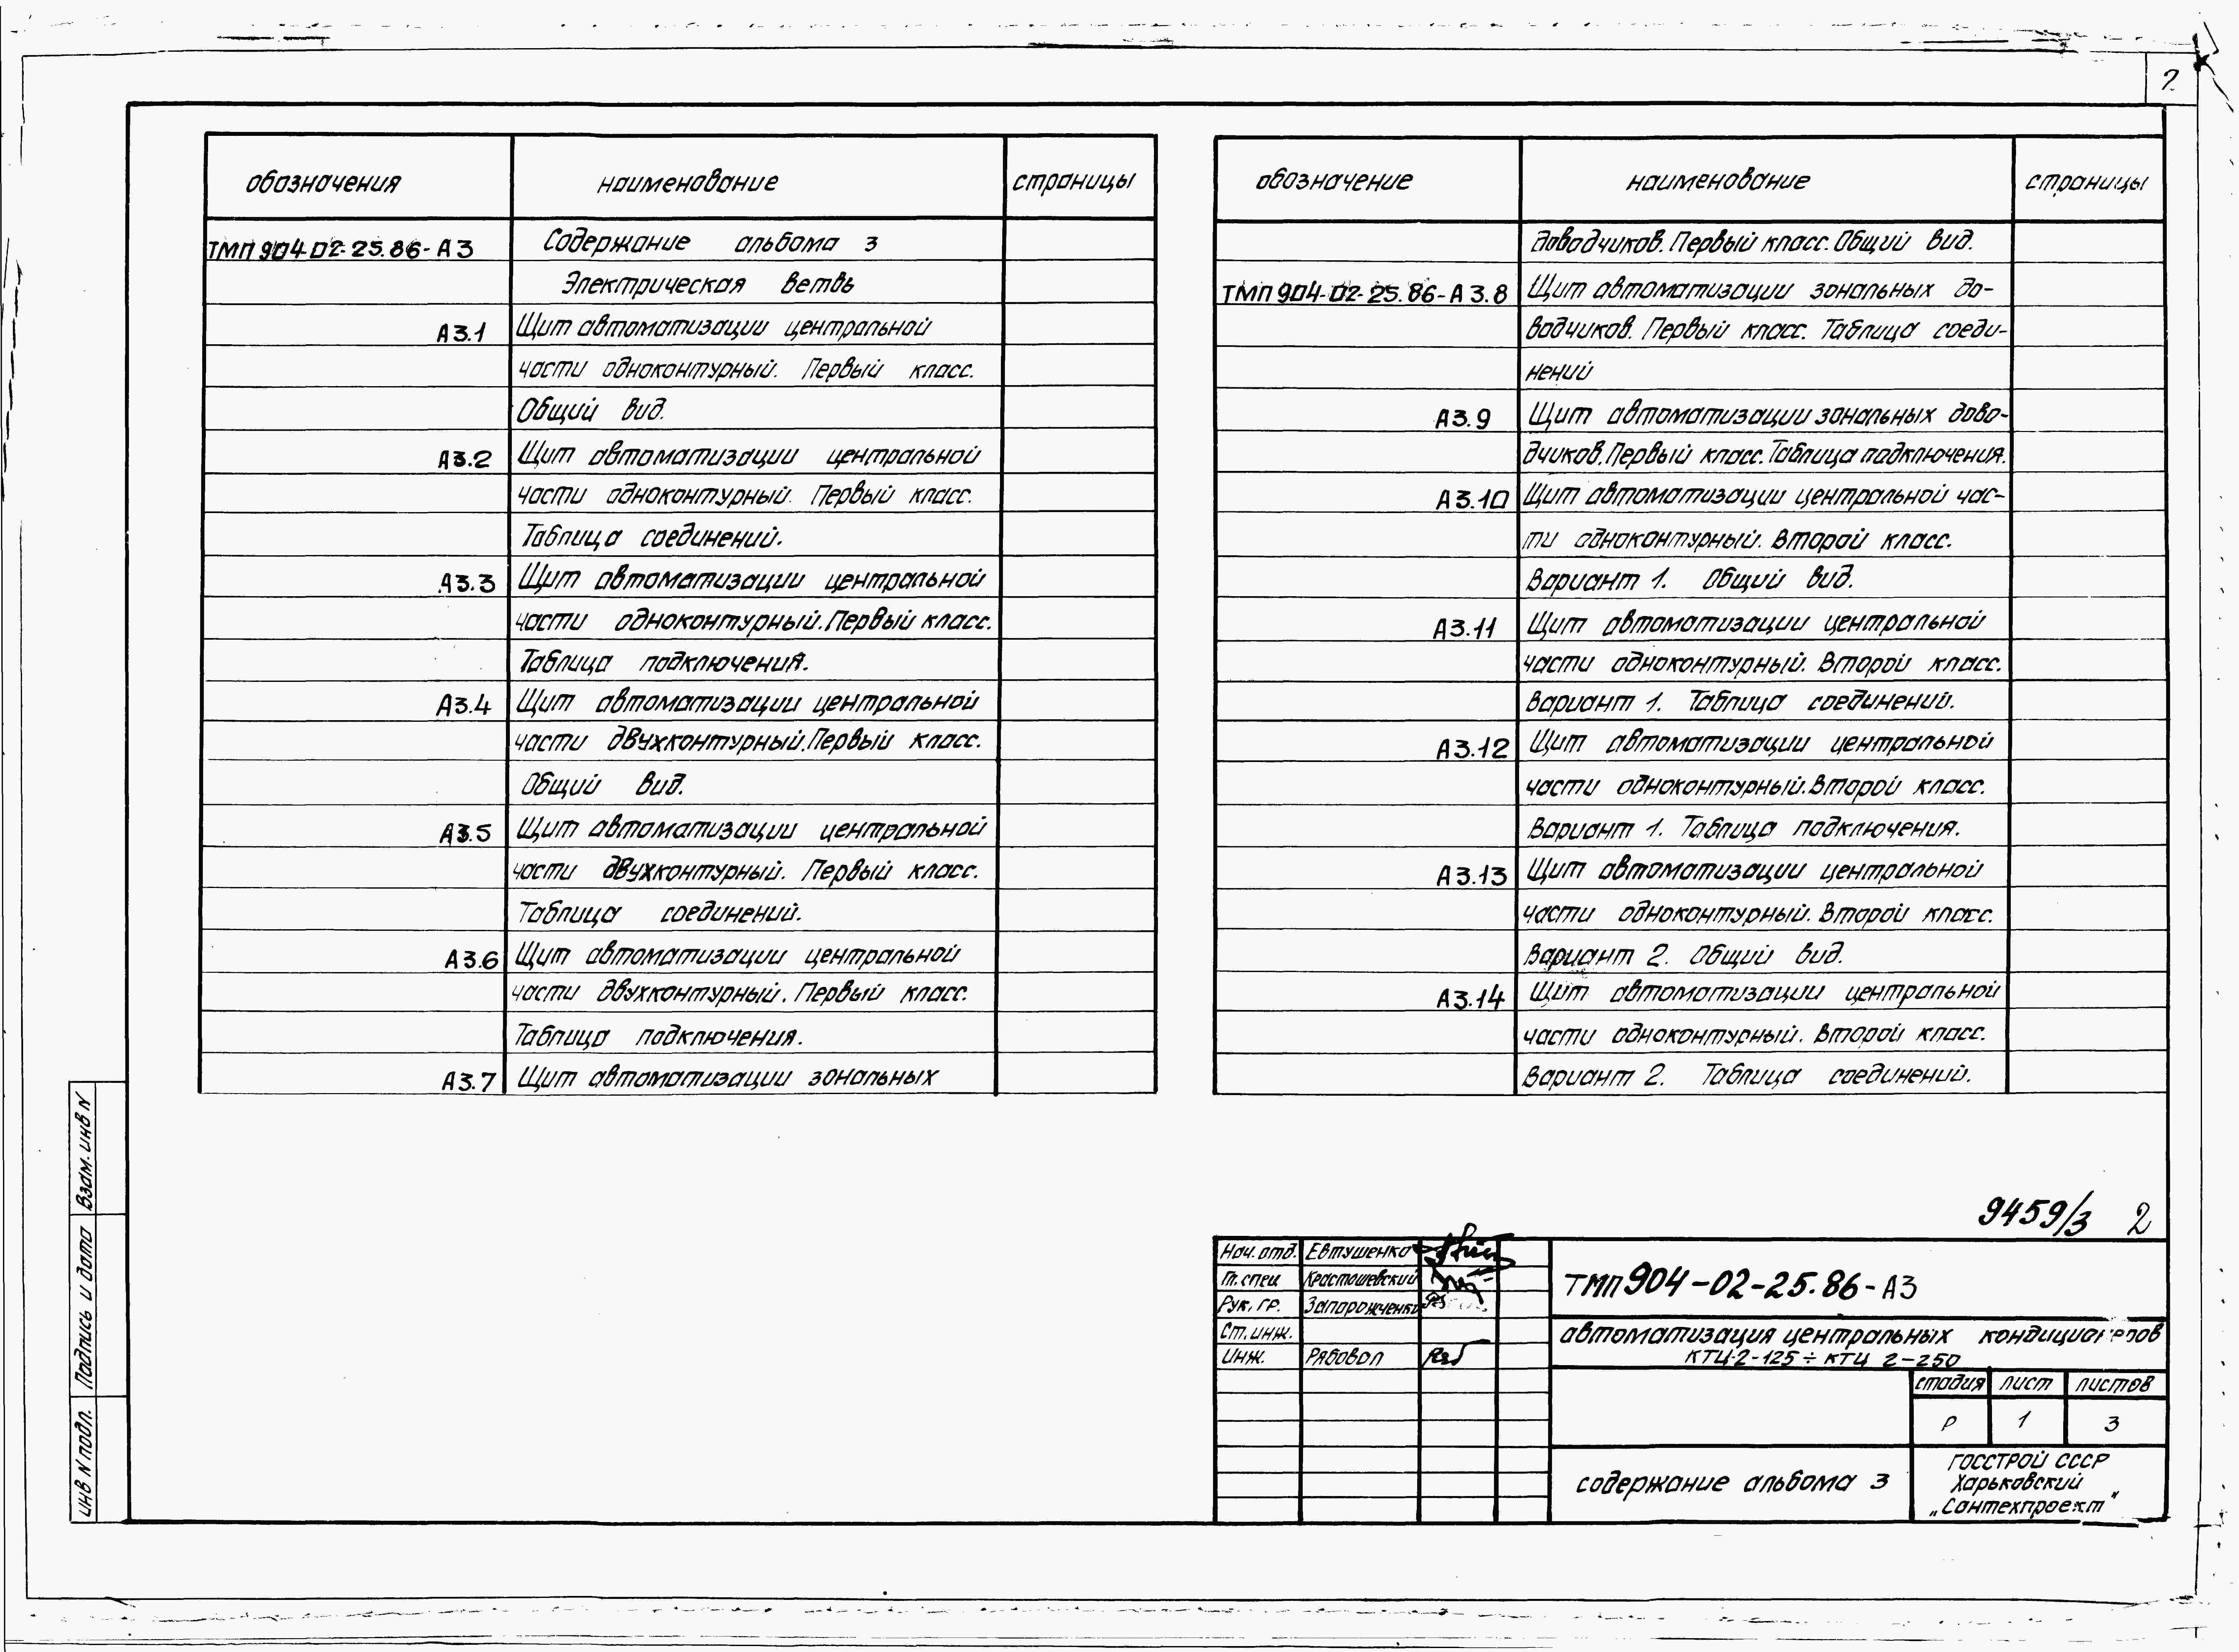 2
обозначения наименование страницы
ТМП 904-02-25.86-А3 Содержание альбома 3
Электрическая ветвь
А3.1 Щит автоматизации центральной
части одноконтурный. Первый класс.
Общий вид.
А3.2 Щит автоматизации центральной
части одноконтурный. Первый класс.
Таблица соединений.
А3.3 Щит автоматизации центральной
части одноконтурный. Первый класс.
Таблица подключения.
А3.4 Щит автоматизации центральной
части двухконтурный. Первый класс.
Общий вид.
А3.5 Щит автоматизации центральной
части двухконтурный. Первый класс.
Таблица соединений.
А3.6 Щит автоматизации центральной
части двухконтурный. Первый класс.
Таблица подключения.
А3.7 Щит автоматизации зональных
обозначение наименование страницы
доводчиков. Первый класс. Общий вид.
ТМП 904-02-25.86-А3.8 Щит автоматизации зональных до-
водчиков. Первый класс. Таблица соеди-
нений
А3.9 Щит автоматизации зональных дово-
дчиков. Первый класс. Таблица подключения.
А3.10 Щит автоматизации центральной час-
ти одноконтурный. Второй класс.
Вариант 1. Общий вид.
А3.11 Щит автоматизации центральной
части одноконтурный. Второй класс.
Вариант 1. Таблица соединений.
А3.12 Щит автоматизации центральной
части одноконтурный. Второй класс.
Вариант 1. Таблица подключения.
А3.13 Щит автоматизации центральной
части одноконтурный. Второй класс.
Вариант 2. Общий вид.
А3.14 Щит автоматизации центральной
части одноконтурный. Второй класс.
Вариант 2. Таблица соединений.
9459/3 2
Нач. отд. Евтушенко
Гл. спец Красташевский
Рук. гр. Запорожченко
Ст. инж.
Инж. Рябовол
ТМП 904-02-25.86-А3
автоматизация центральных кондиционеров
КТЦ-2-125÷КТЦ 2-250
стадия лист листов
Р 1 3
содержание альбома 3
ГОССТРОЙ СССР
Харьковский
„Сантехпроект"
Взам. инв N
Подпись и дата
инв N подл.